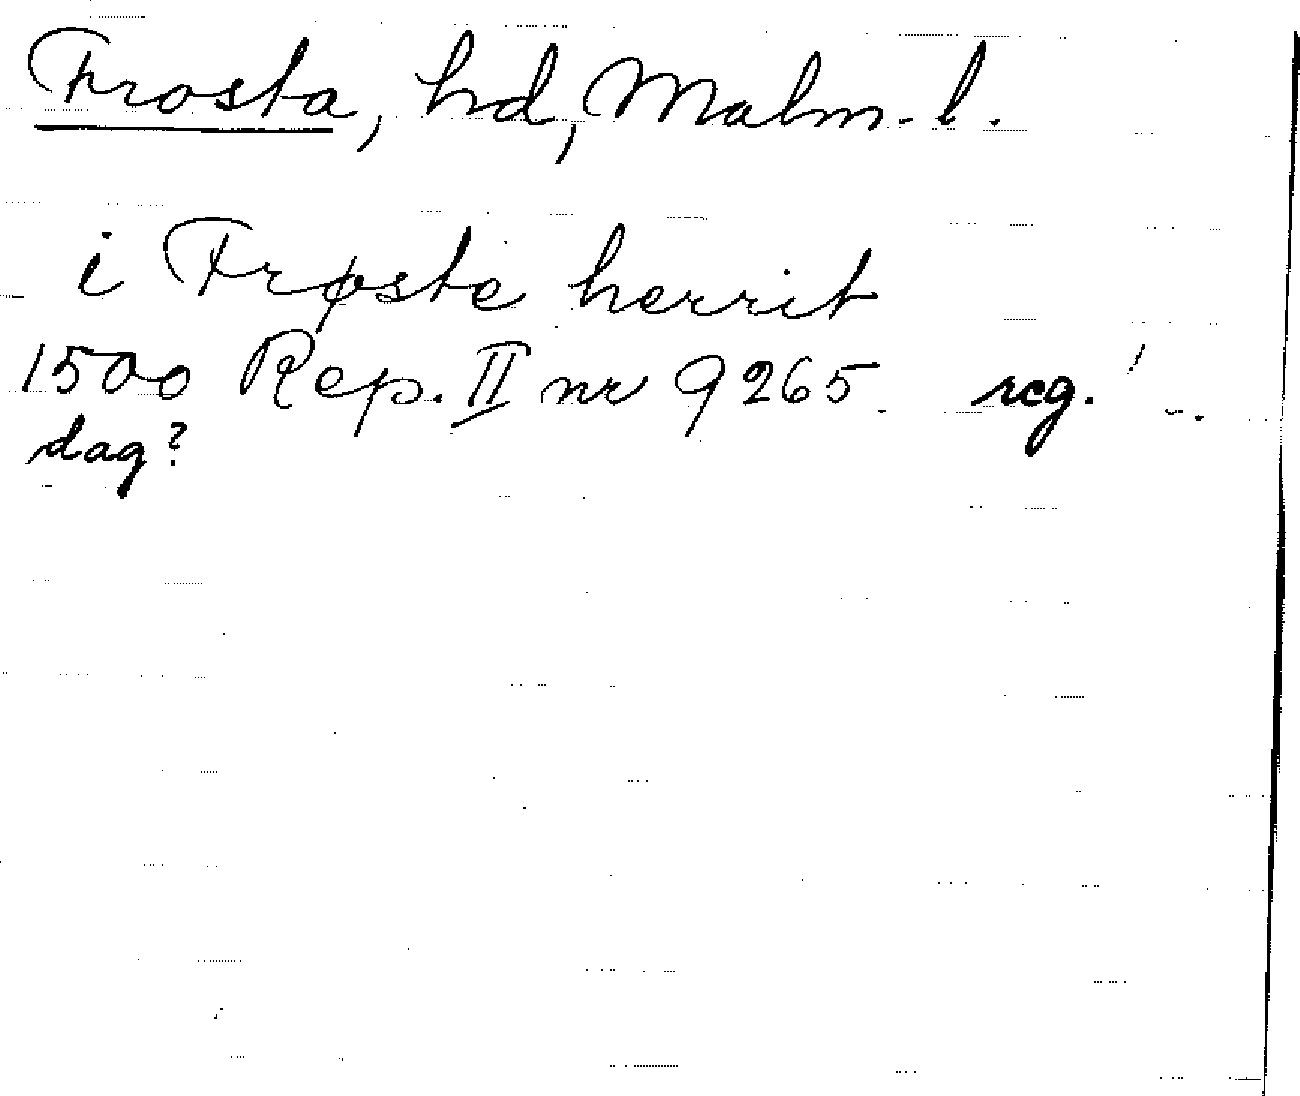 Frosta, hd, Malm. l.
i Frøste herrit
1500 Rep. II nr 9265 reg.
dag?